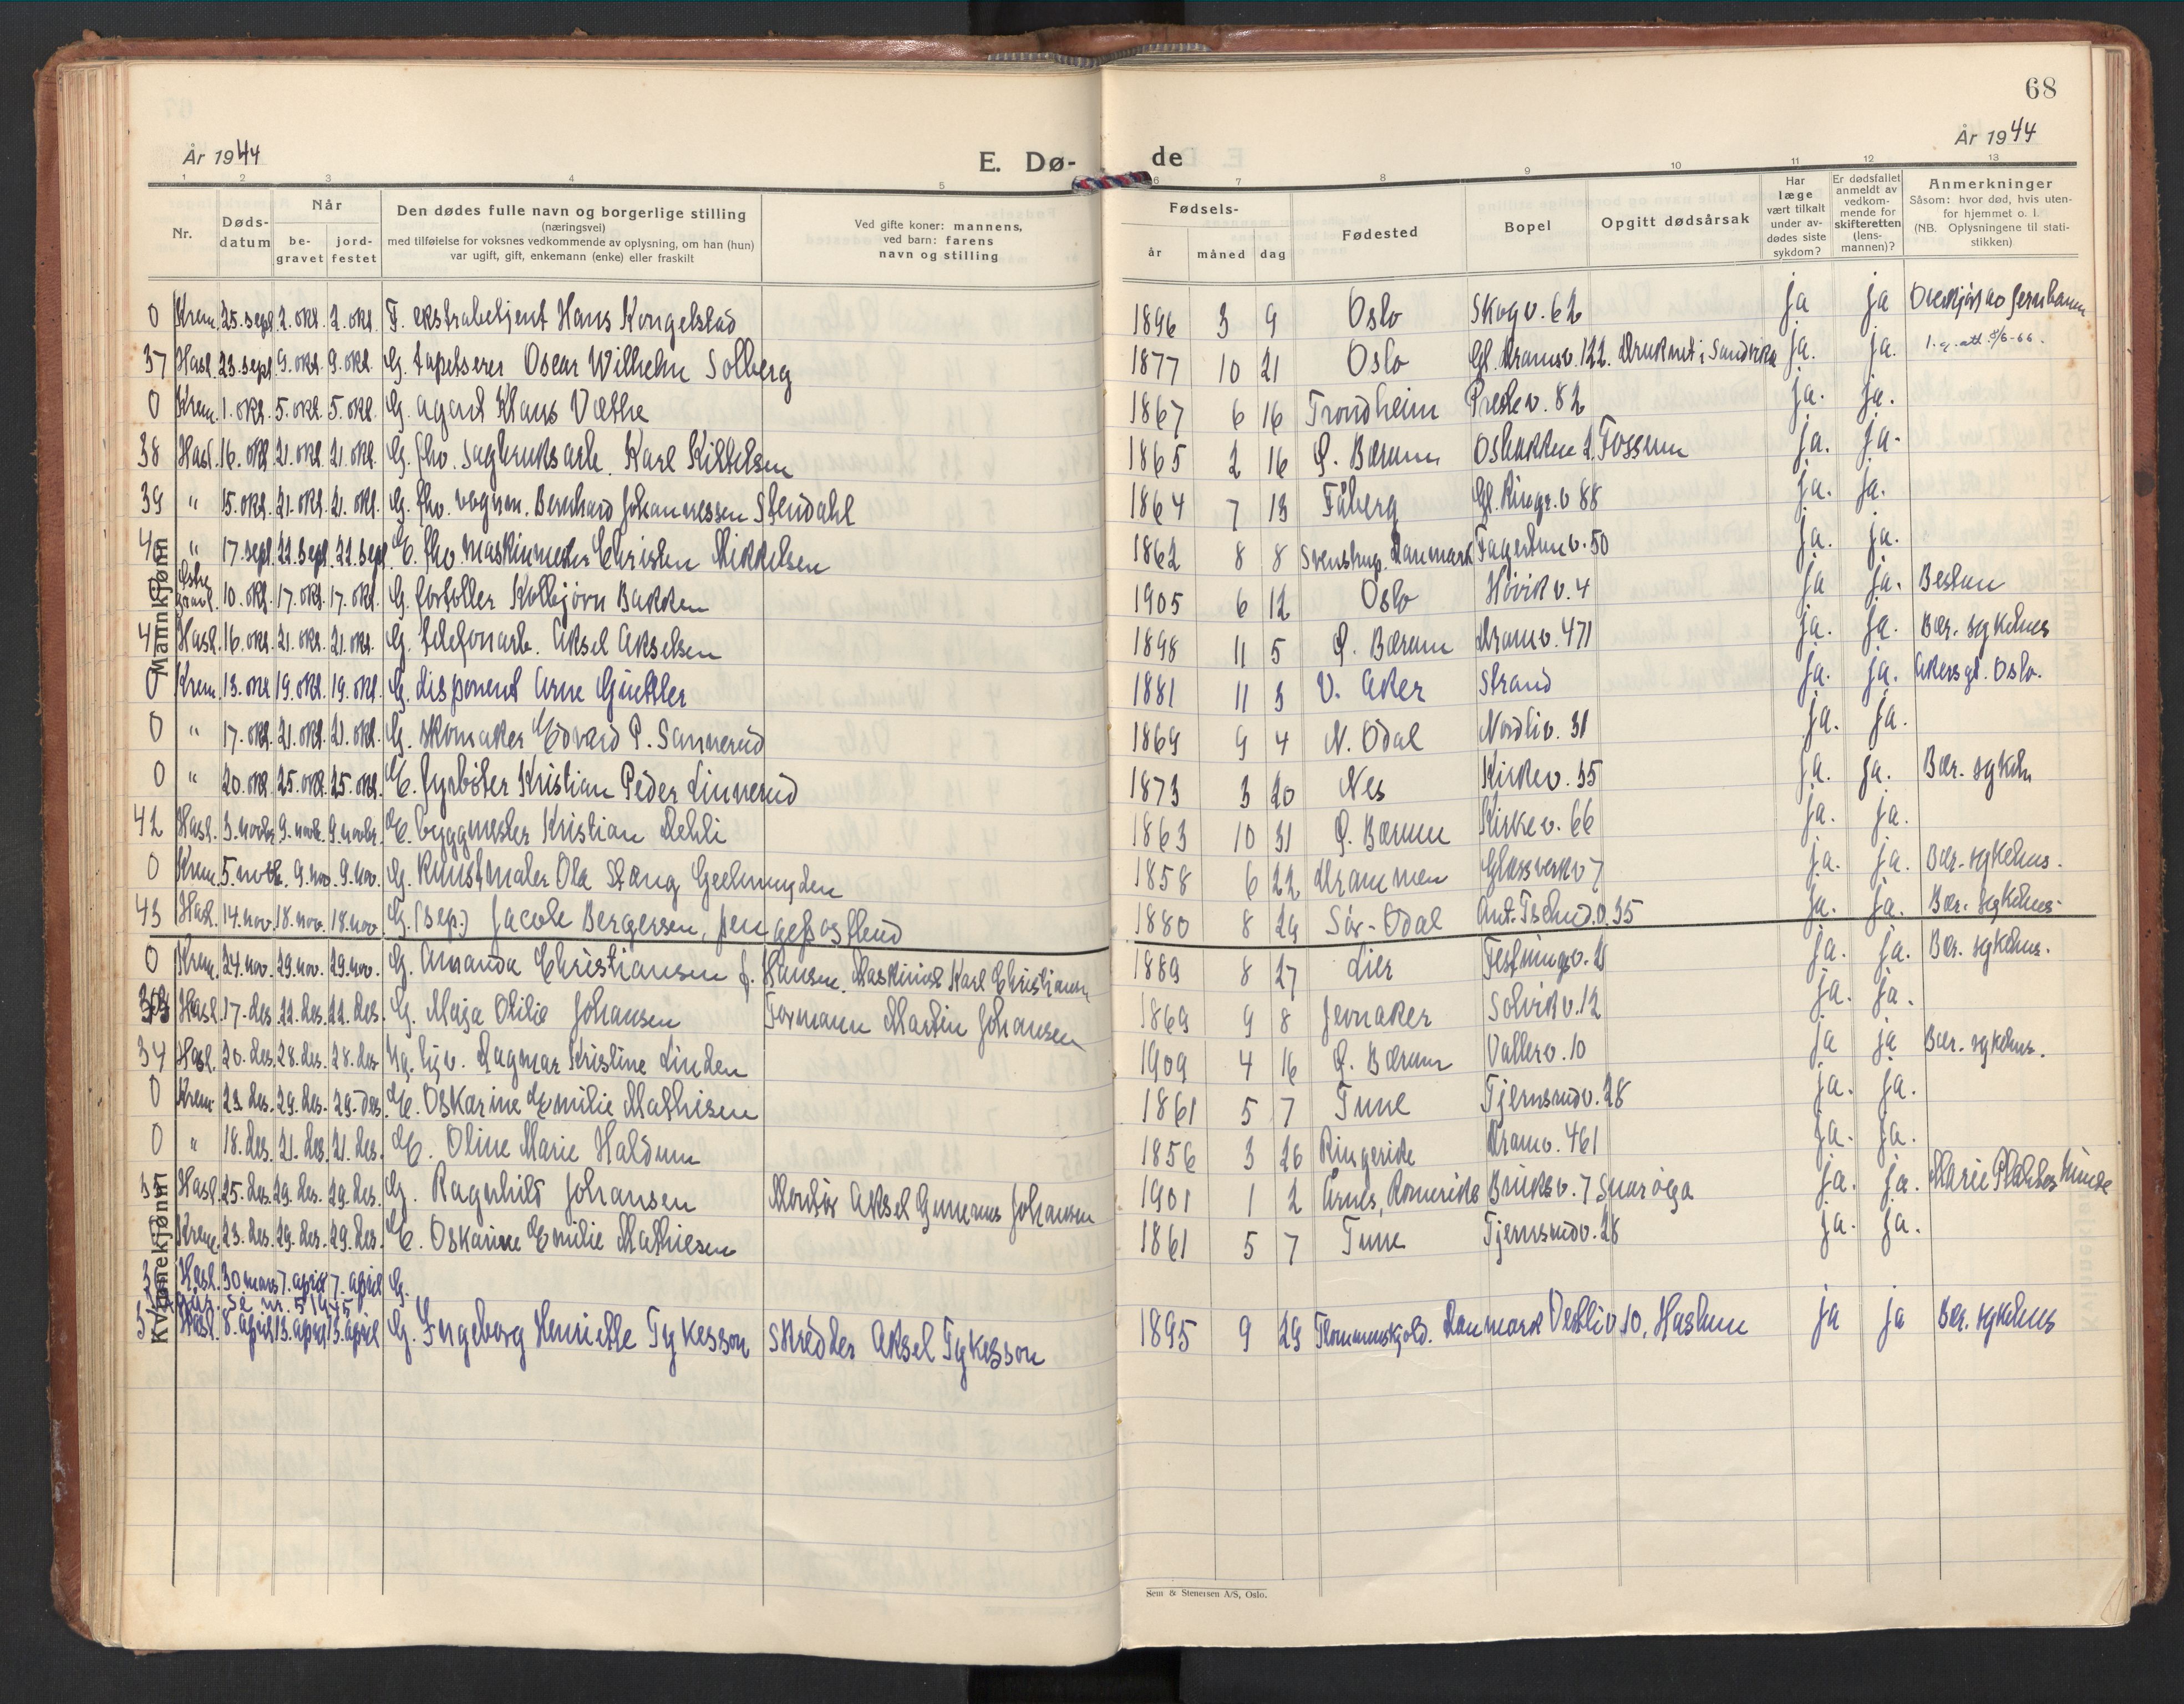 68
År 1944
E. Dø-
de
År 1944
1 2 3 4 5 6 7 8 9 10 11 12 13
Nr.
Døds-
datum
Når
be-
gravet
jord-
festet
Den dødes fulle navn og borgerlige stilling
(næringsvei)
med tilføielse for voksnes vedkommende av oplysning, om han (hun)
var ugift, gift, enkemann (enke) eller fraskilt
Ved gifte koner: mannens,
ved barn: farens
navn og stilling
Fødsels-
år måned dag
Fødested
Bopel
Opgitt dødsårsak
Har
læge
vært tilkalt
under av-
dødes siste
sykdom?
Er dødsfallet
anmeldt av
vedkom-
mende for
skifteretten
(lens-
mannen)?
Anmerkninger
Såsom: hvor død, hvis uten-
for hjemmet o. l.
(NB. Oplysningene til stati-
stikken)
Mannkjønn
0 Krem. 25. sept. 2. okt. 2. okt. F. ekstrabetjent Hans Kongelstad 1896 3 9 Oslo Skogv. 62 ja ja
37 Hasl. 23. sept. 9. okt. 9. okt. G. tapetserer Oscar Wilhelm Solberg 1877 10 21 Oslo Gl. Dramsv. 122. Druknet i Sandvika ja. ja.
0 Krem. 1. okt. 5. okt. 5. okt. G. agent Klaus Vethe 1867 6 16 Trondheim Prestev. 82 ja. ja.
38 Hasl. 16. okt. 21. okt. 21. okt. G. fhv. sagbruksarb. Karl Kittelsen 1865 2 16 Ø. Bærum Osbakken 2. Fossum ja. ja.
39 " 15. okt. 21. okt. 21. okt. G. fhv. vognm. Bernhard Johannessen Stendahl 1864 7 13 Fåberg Gl. Ringr. v 88 ja. ja.
40 " 17. sept. 22. sept. 22. sept. E. fhv. maskinmester Christen Mikkelsen 1862 8 8 Svenstrup. Danmark Fagertunv. 50 ja. ja.
0 Østre gravl. 10. okt. 17. okt. 17. okt. G. fortoller Kolbjørn Bakken 1905 6 12 Oslo Høvikv. 4 ja ja. Bestum
41 Hasl. 16. okt. 21. okt. 21. okt. G. telefonarb. Aksel Akselsen 1898 11 5 Ø. Bærum Dramv. 471 ja. ja. Bær. sykehus
0 Krem. 13. okt 19. okt. 19. okt G. disponent Arne Güettler 1881 11 3 V. Aker Strand ja. ja. Akersgt. Oslo.
0 " 17. okt. 21. okt. 21. okt. G. skomaker Edvard P. Sannerud 1869 9 4 N. Odal Nordliv. 31 ja. ja.
0 " 20. okt. 25. okt. 25. okt. E. fyrbøter Kristian Peder Linnerud 1873 3 20 Nes Kirkev. 35 ja. ja. Bær. sykeh
42 Hasl. 3. novbr. 9. novb. 9. novbr. E. byggmester Kristian Dehli 1863 10 31 Ø. Bærum Kirkev. 66 ja. ja.
0 Krem. 5. novb. 9. nov. 9. nov. G. kunstmaler Ola Stang Geelmuyden 1858 6 22 Drammen Glassverkv 7 ja. ja. Bær. sykehus.
43 Hasl. 14. nov. 18. nov. 18. nov G. (sep.) Jacob Bergersen, 1880 8 29 Sør-Odal Ant. Tschud. v. 35 ja. ja. Bær. sykehus.
Kvinnekjønn
0 Krem. 24. nov. 29. nov. 29. nov. G. Amanda Christiansen f. Hansen. Maskinist Karl Christiansen 1889 8 27 Lier Festningsv. 2 ja. ja. Bær. sykehus.
33 Hasl. 17. des. 22. des. 22. des. G. Maja Otilie Johansen Formann Martin Johansen 1869 9 8 Jevnaker Solvikv. 12 ja. ja.
34 Hasl. 20. des. 28. des. 28. des Ug. Dagmar Kristine Linden 1909 4 16 Ø. Bærum Vallerv. 10 ja ja Bær. sykehus.
0 Krem. 23. des. 29. des. 29. des. E. Oskarine Emilie Mathisen 1861 5 7 Tune Tjernsrudv. 28 ja. ja.
0 " 18. des. 21. des. 21. des. E. Oline Marie Haldum 1856 3 26 Ringerike Dramv. 461 ja. ja.
Hasl. 25. des. 29. des. 29. des. G. Ragnhild Johansen Montør Aksel Gunerius Johansen 1901 1 2 Årnes, Romerike Bruksv. 7 Snarøya ja. ja.
Krem. 23. des. 29. des. 29. des. E. Oskarine Emilie Mathiesen 1861 5 7 Tune Tjernsrudv. 28 ja. ja.
Hasl. 30 mars 7. april 7. april G.
se nr. 5 1945
Hasl. 8. april 13. april 13. april G. Ingeborg Henriette Tykesson Skredder Aksel Tykesson 1895 9 29 Danmark Vestliv. 10, Haslum ja ja Bær. sykehus
Sem & Stenersen A/S, Oslo.